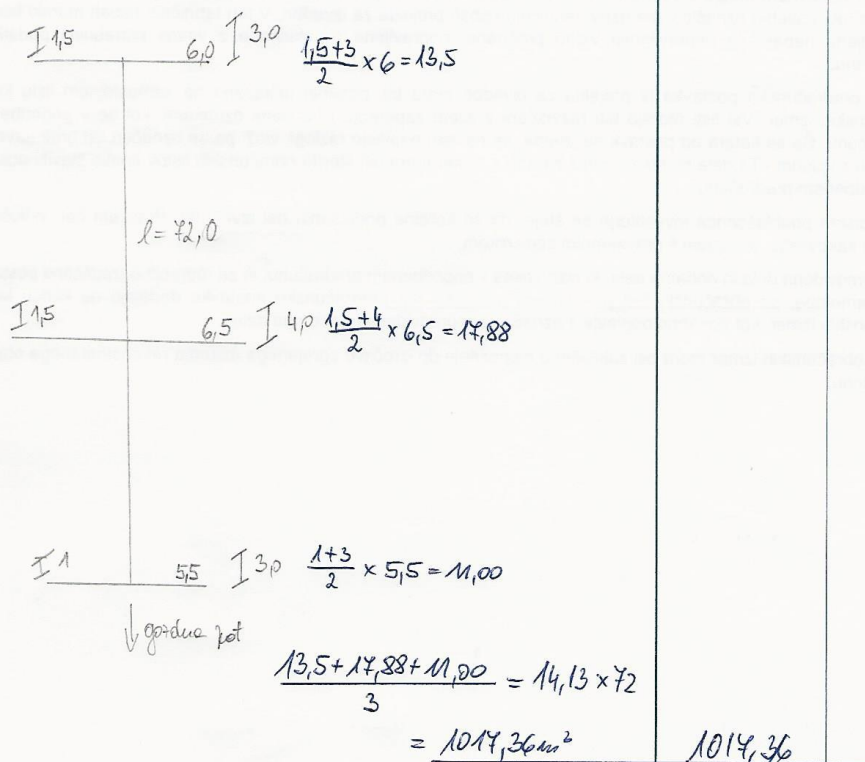 1,5 6,0 3,0 1,5+3/2 × 6 = 13,5
l = 72,0
1,5 6,5 4,0 1,5+4/2 × 6,5 = 17,88
1 5,5 3,0 1+3/2 × 5,5 = 11,00
gozdna pot
13,5+17,88+11,00/3 = 14,13 × 72
= 1017,36 m² 1017,36